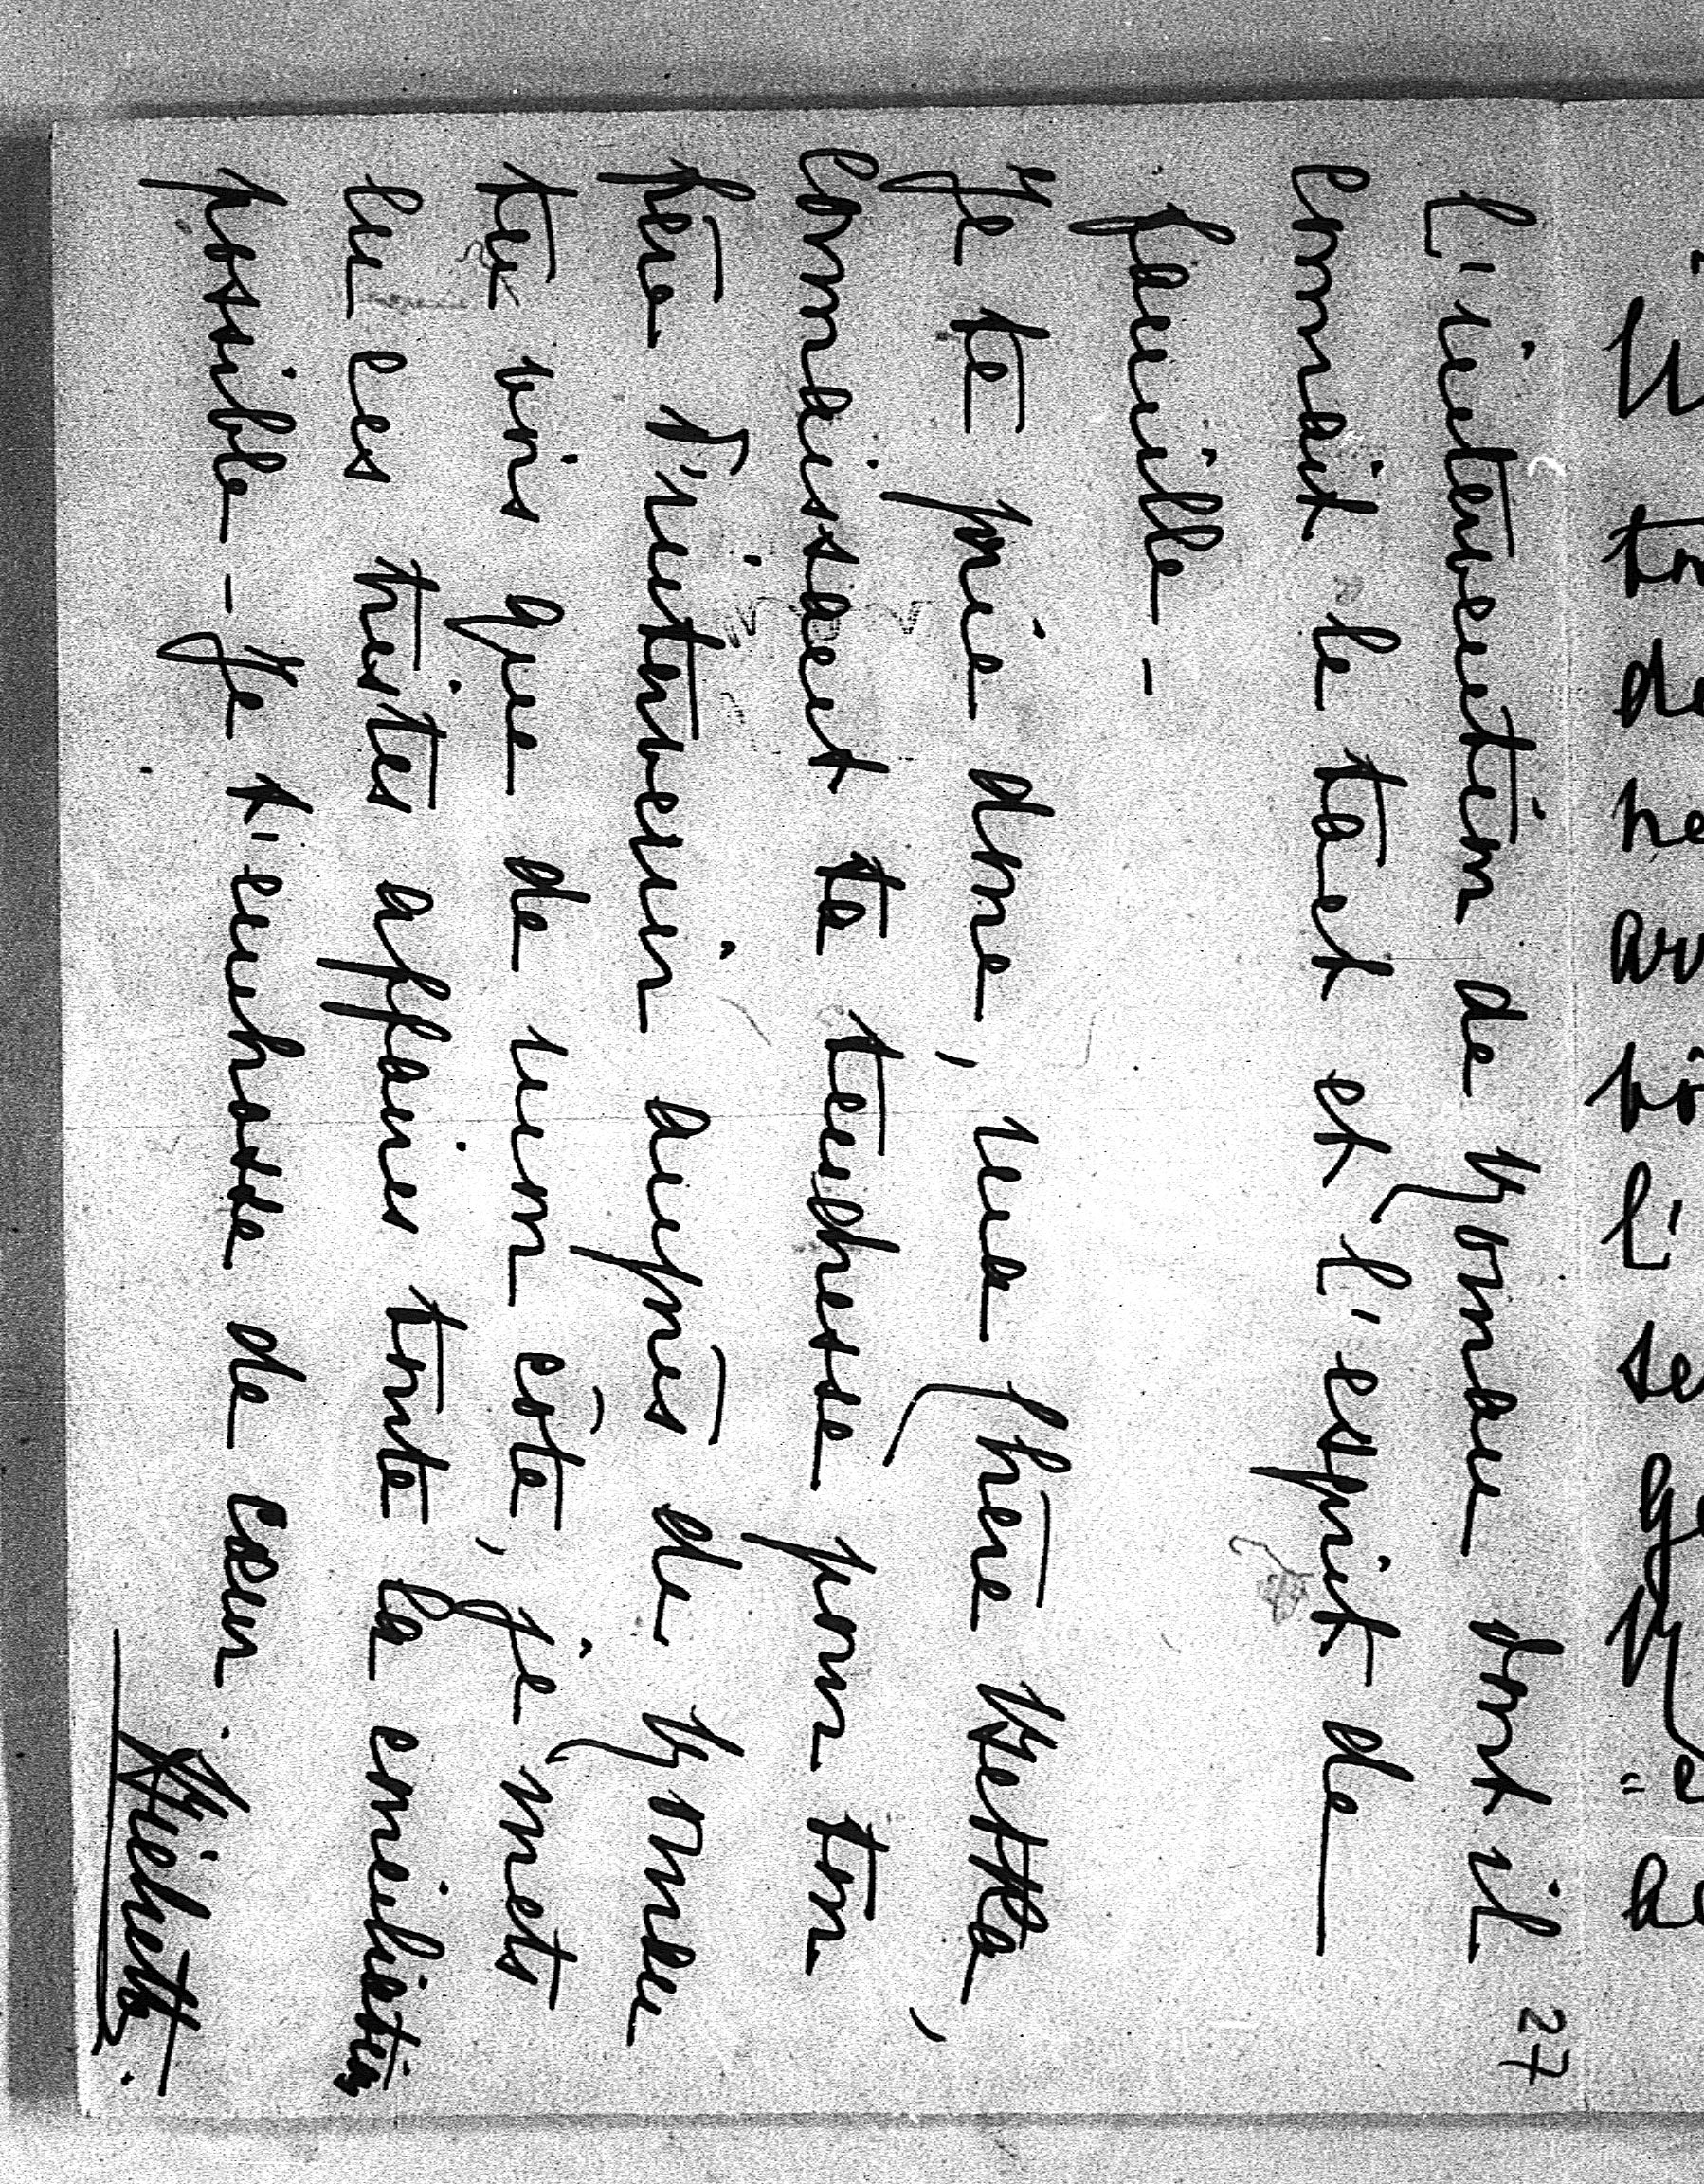 27
l'intervention de dont il
connait le tact et l'esprit de
famille -
Je te prie donc, ma chère
connaissant ta tendresse pour ton
père d'intervenir auprès de
tu vois que de mon côté, je mets
en ces tristes affaires toute la conciliation
possible - Je t'embrasse de cœur.